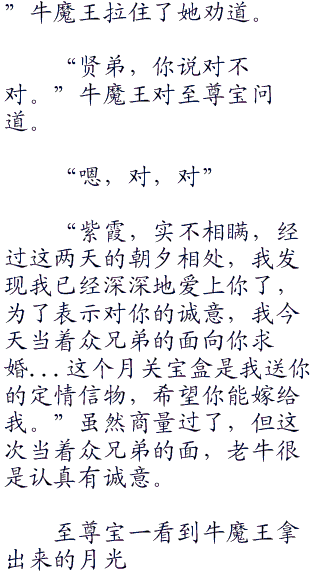 ”牛魔王拉住了她劝道。
“贤弟，你说对不
对。”牛魔王对至尊宝问
道。
“嗯，对，对”
“紫霞，实不相瞒，经
过这两天的朝夕相处，我发
现我已经深深地爱上你了，
为了表示对你的诚意，我今
天当着众兄弟的面向你求
婚...这个月关宝盒是我送你
的定情信物，希望你能嫁给
我。”虽然商量过了，但这
次当着众兄弟的面，老牛很
是认真有诚意。
至尊宝一看到牛魔王拿
出来的月光